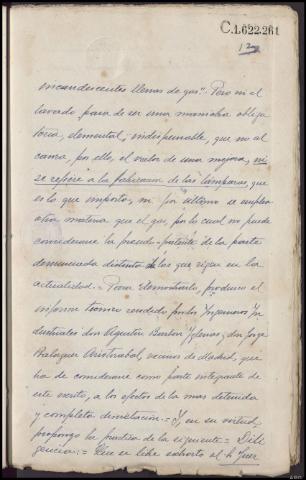 C.1.622.261
incandescentes llenas de gas". Pero ni el
lavado pasa de ser una maniobra obliga
toria, elemental, indispensable, que no al
canza, por ello, el valor de una mejora, ni
se refiere a la fabricacion de las lámparas, que
es lo que importa, ni por último se emplea
otra materia que el gas, por lo cual no puede
considerarse la pseudo-patente de la parte
demandada distinta de las que rigen en la
actualidad.= Para demostrarlo, produzco el
informe tecnico rendido por los Ingenieros In
dustriales don Agustín Iglesias, y don Jorge
Balaguer vecinos de Madrid, que
ha de considerarse como parte integrante de
este escrito, a los efectos de la mas detenida
y completa demostracion.= Y, en su virtud,
propongo la practica de la siguiente= Dili
gencia:= Que se libre exhorto al Juez